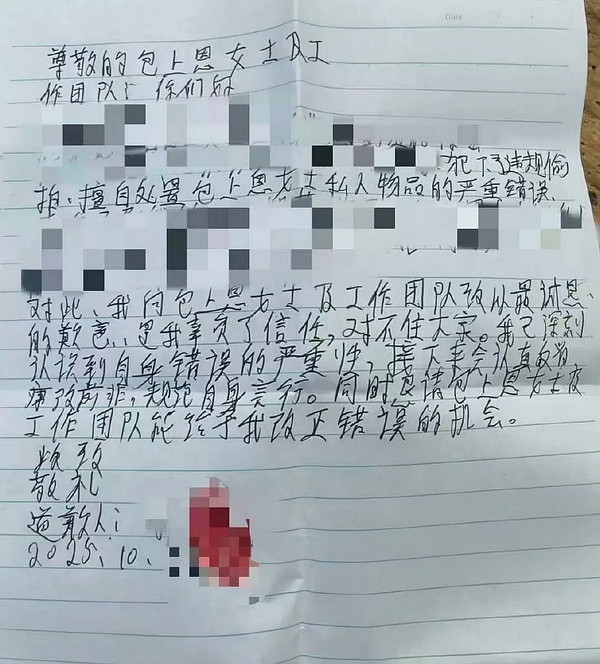 Date
尊敬的包上恩女士及工
作团队：你们好
犯下了违规偷
拍、擅自处置包上恩女士私人物品的严重错误、
对此、我向包上恩女士及工作团队致以最诚恳
的歉意、是我辜负了信任，对不住大家。我已深刻
认识到自身错误的严重性，接下来会认真反省
痛改前非，规范自身言行。同时恳请包上恩女士及
工作团队能给予我改正错误的机会。
顺致
敬礼
道歉人：
2025.10.